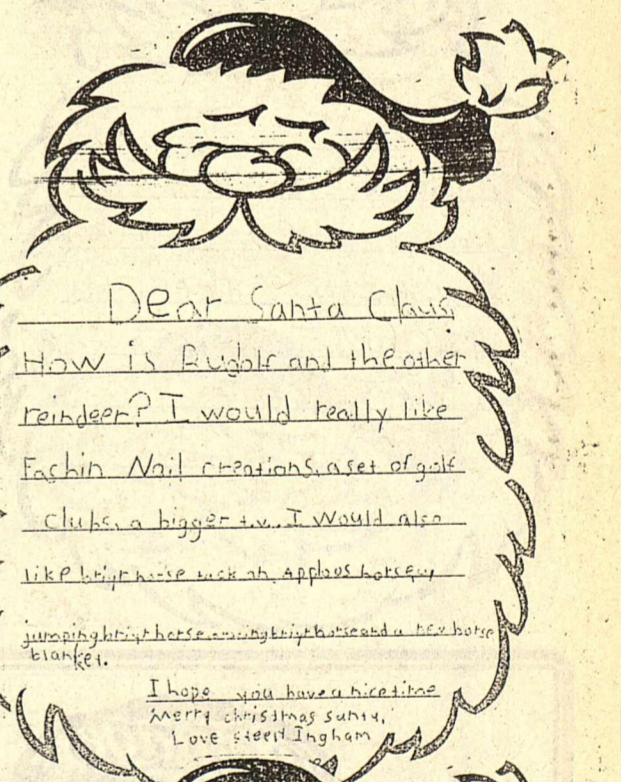 Dear Santa Claus,
How is Rugolf and the other
reindeer? I would really like
Fachin Nail creations, a set of golf
clubs, a bigger t.v.. I would also
like horse
jumping horse and a new horse
blanket.
I hope you have a nice time
Merry christmas santa,
Love Ingham